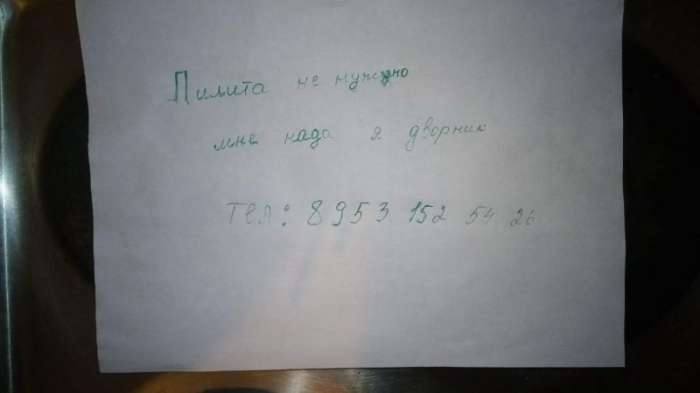 Пилита не нужно
мне нада я дворник
тел: 8953 152 54 26